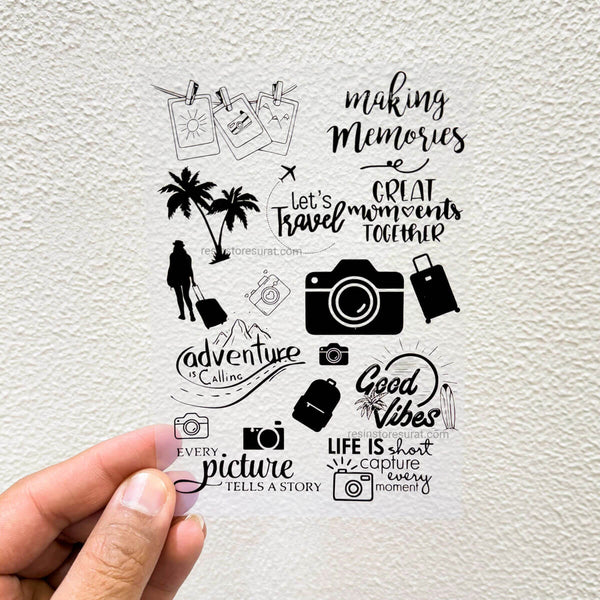 making
Memories
let's
Travel
GREAT
moments
TOGETHER
resinstoresurat.com
adventure
is Calling
Good
Vibes
resinstoresurat.com
EVERY
picture
TELLS A STORY
LIFE IS short
capture
every
moment